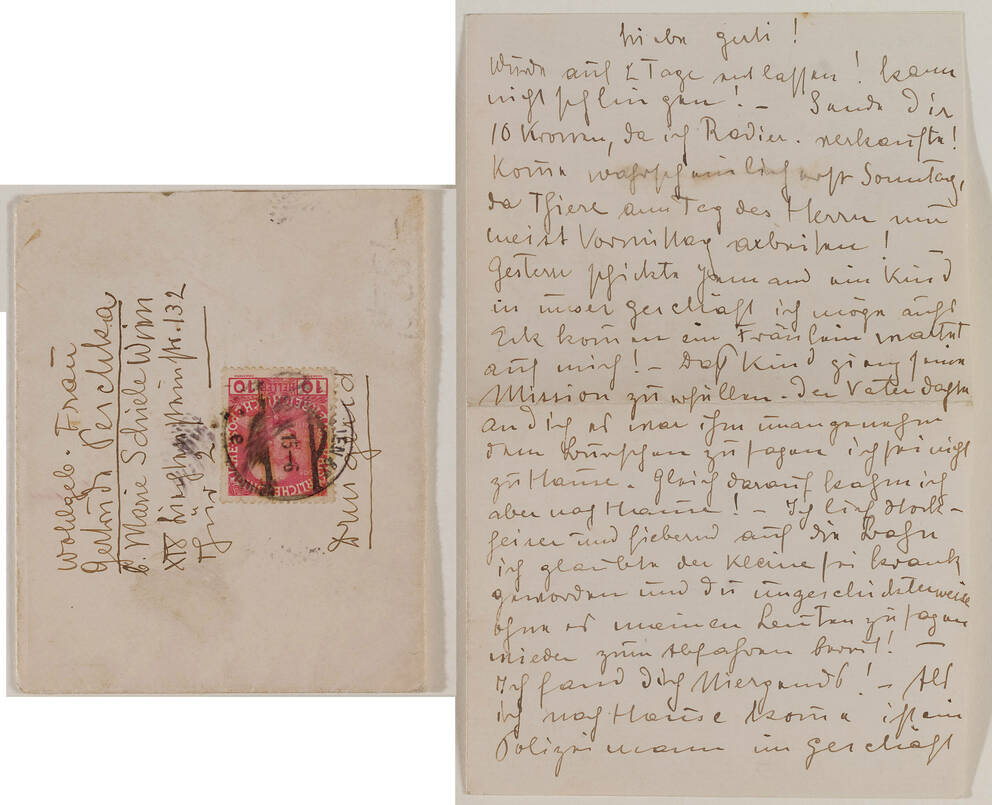 Wohlgeb. Frau
Gertrude Peschka
b. Marie Schiele Wien
XIX
Tür
Drucksache
10 HELLER 10
15
Liebe Gerti!
Wurde auf 2 Tage entlassen! kann
nicht schlingen! – Sende Dir
10 Kronen, da ich Radier. verkaufte!
Komme wahrscheinlich erst Sonntag,
da Thiere am Tag des Herrn nur
meist Vormittag arbeiten! –
Gestern schickte Jemand ein Kind
in unser Geschäft ich möge aufs
Eck kommen ein Fräulein wartet
auf mich! – Das Kind ging seine
Mission zu erfüllen. Der Vater dachte
an dich es war ihm unangenehm
dem Burschen zu sagen ich sei nicht
zu Hause. Gleich darauf kahm ich
aber nach Hause! – Ich lief stock-
heiser und fiebernd auf die Bahn
ich glaubte der Kleine sei krank
geworden und du ungeschickterweise
ohne es meinen Leuten zu sagen
wieder zum Abfahren bereit! –
Ich fand dich Niergends! – Als
ich nach Hause komme ist ein
Polizeimann im Geschäft